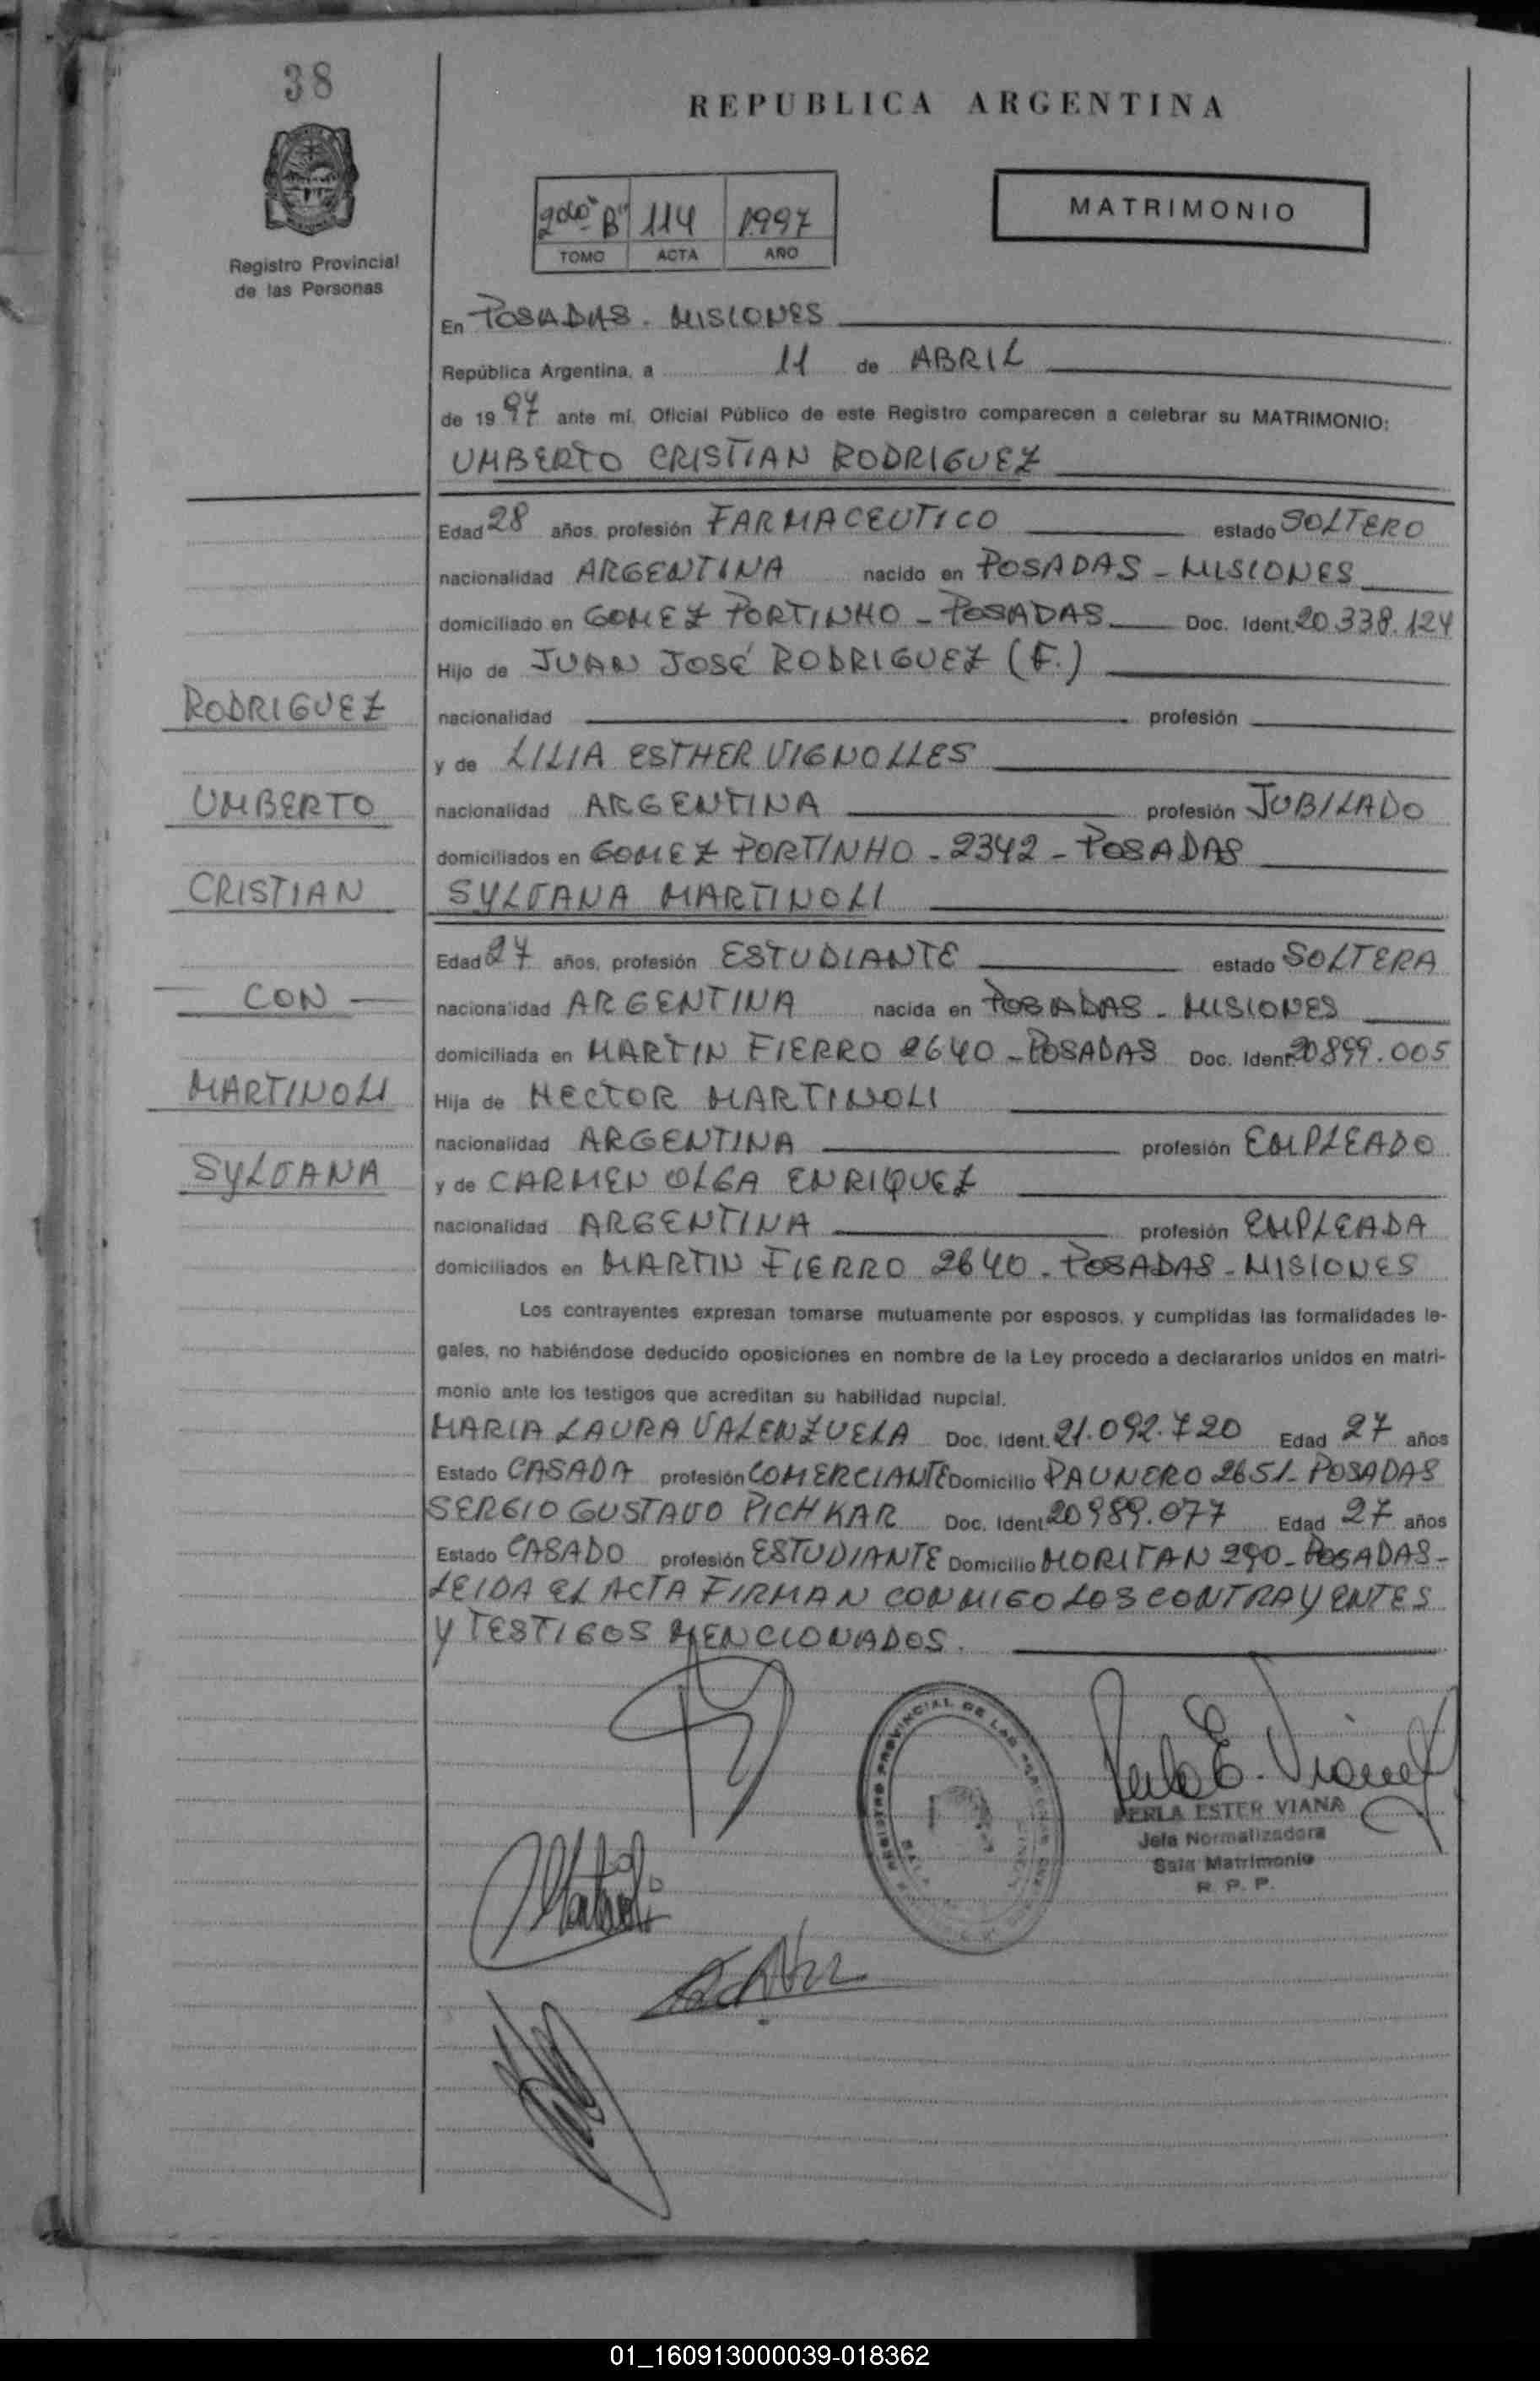 38
REPUBLICA ARGENTINA
MATRIMONIO
2do "B" 114 1997
TOMO ACTA AÑO
Registro Provincial
de las Personas
En POSADAS - MISIONES
República Argentina, a 11 de ABRIL
de 1997 ante mí, Oficial Público de este Registro comparecen a celebrar su MATRIMONIO:
UMBERTO CRISTIAN RODRIGUEZ
Edad 28 años, profesión FARMACEUTICO estado SOLTERO
nacionalidad ARGENTINA nacido en POSADAS - MISIONES
domiciliado en GOMEZ PORTINHO - POSADAS Doc. Ident. 20.338.124
Hijo de JUAN JOSÉ RODRIGUEZ (F.)
RODRIGUEZ
nacionalidad profesión
y de LILIA ESTHER VIGNOLLES
UMBERTO
nacionalidad ARGENTINA profesión JUBILADO
domiciliados en GOMEZ PORTINHO - 2342 - POSADAS
CRISTIAN
SYLVANA MARTINOLI
Edad 27 años, profesión ESTUDIANTE estado SOLTERA
CON
nacionalidad ARGENTINA nacida en POSADAS - MISIONES
domiciliada en MARTIN FIERRO 2640 - POSADAS Doc. Ident. 20899.005
MARTINOLI
Hija de HECTOR MARTINOLI
nacionalidad ARGENTINA profesión EMPLEADO
SYLVANA
y de CARMEN OLGA ENRIQUEZ
nacionalidad ARGENTINA profesión EMPLEADA
domiciliados en MARTIN FIERRO 2640 - POSADAS - MISIONES
Los contrayentes expresan tomarse mutuamente por esposos, y cumplidas las formalidades le-
gales, no habiéndose deducido oposiciones en nombre de la Ley procedo a declararlos unidos en matri-
monio ante los testigos que acreditan su habilidad nupcial.
MARIA LAURA VALENZUELA Doc. Ident. 21.092.720 Edad 27 años
Estado CASADA profesión COMERCIANTE Domicilio PAUNERO 2651 - POSADAS
SERGIO GUSTAVO PICHKAR Doc. Ident. 20989.077 Edad 27 años
Estado CASADO profesión ESTUDIANTE Domicilio MORITAN 290 - POSADAS -
LEIDA EL ACTA FIRMAN CONMIGO LOS CONTRAYENTES
Y TESTIGOS MENCIONADOS.
PROVINCIAL DE LAS
PERLA ESTER VIANA
Jefa Normalizadora
Sala Matrimonio
R. P. P.
01_160913000039-018362